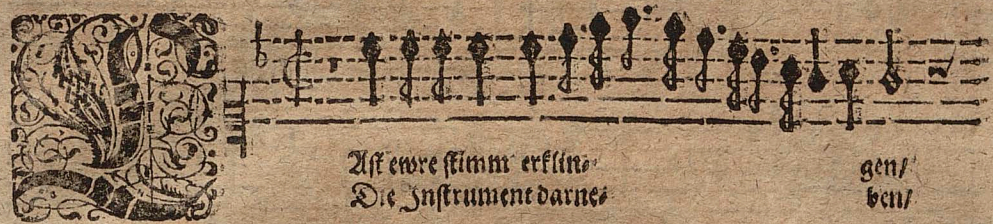 LAſt ewre ſtimm erklin⸗ gen/
Die Inſtrument darne⸗ ben/